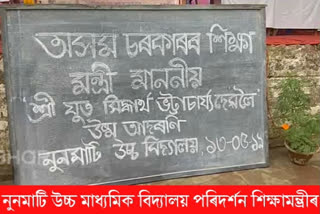 অসম চৰকাৰৰ শিক্ষা
মন্ত্ৰী মাননীয়
শ্ৰী যুত সিদ্ধাৰ্থ ভট্টাচাৰ্য্য দেৱলৈ
উষ্ম আদৰণি
নুনমাটি উচ্চ বিদ্যালয়, ১৩-০৫-১৯
নুনমাটি উচ্চ মাধ্যমিক বিদ্যালয় পৰিদৰ্শন শিক্ষামন্ত্ৰীৰ